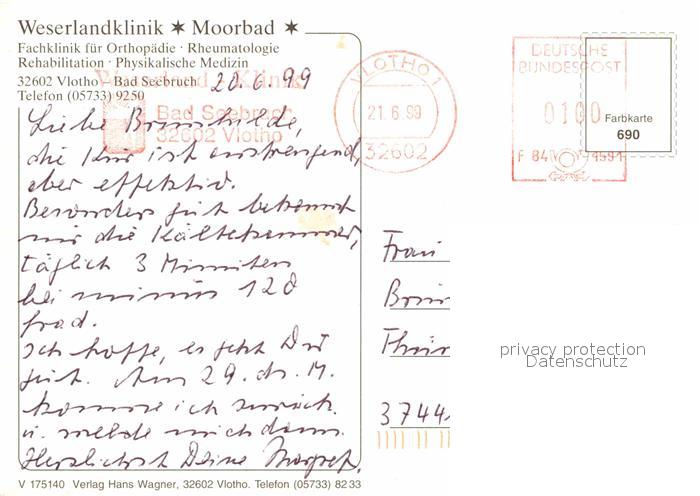 Weserlandklinik ✶ Moorbad ✶
Fachklinik für Orthopädie · Rheumatologie
Rehabilitation · Physikalische Medizin
32602 Vlotho – Bad Seebruch
Telefon (05733) 9250
20.6.99
Weserland-Klinik
Bad Seebruch
32602 Vlotho
VLOTHO 1
21.6.99
32602
DEUTSCHE
BUNDESPOST
0100
F 84
Farbkarte
690
Liebe Brunhilde,
die Kur ist anstrengend,
aber effektiv.
Besonders gut bekommt
mir die Kältekammer,
täglich 3 Minuten
bei minus 120
Grad.
Ich hoffe, es geht Dir
gut. Am 29. ds. M.
komme ich zurück
u. melde mich dann.
Herzlichst Deine Margret.
Frau
3744
privacy protection
Datenschutz
V 175140 Verlag Hans Wagner, 32602 Vlotho. Telefon (05733) 8233